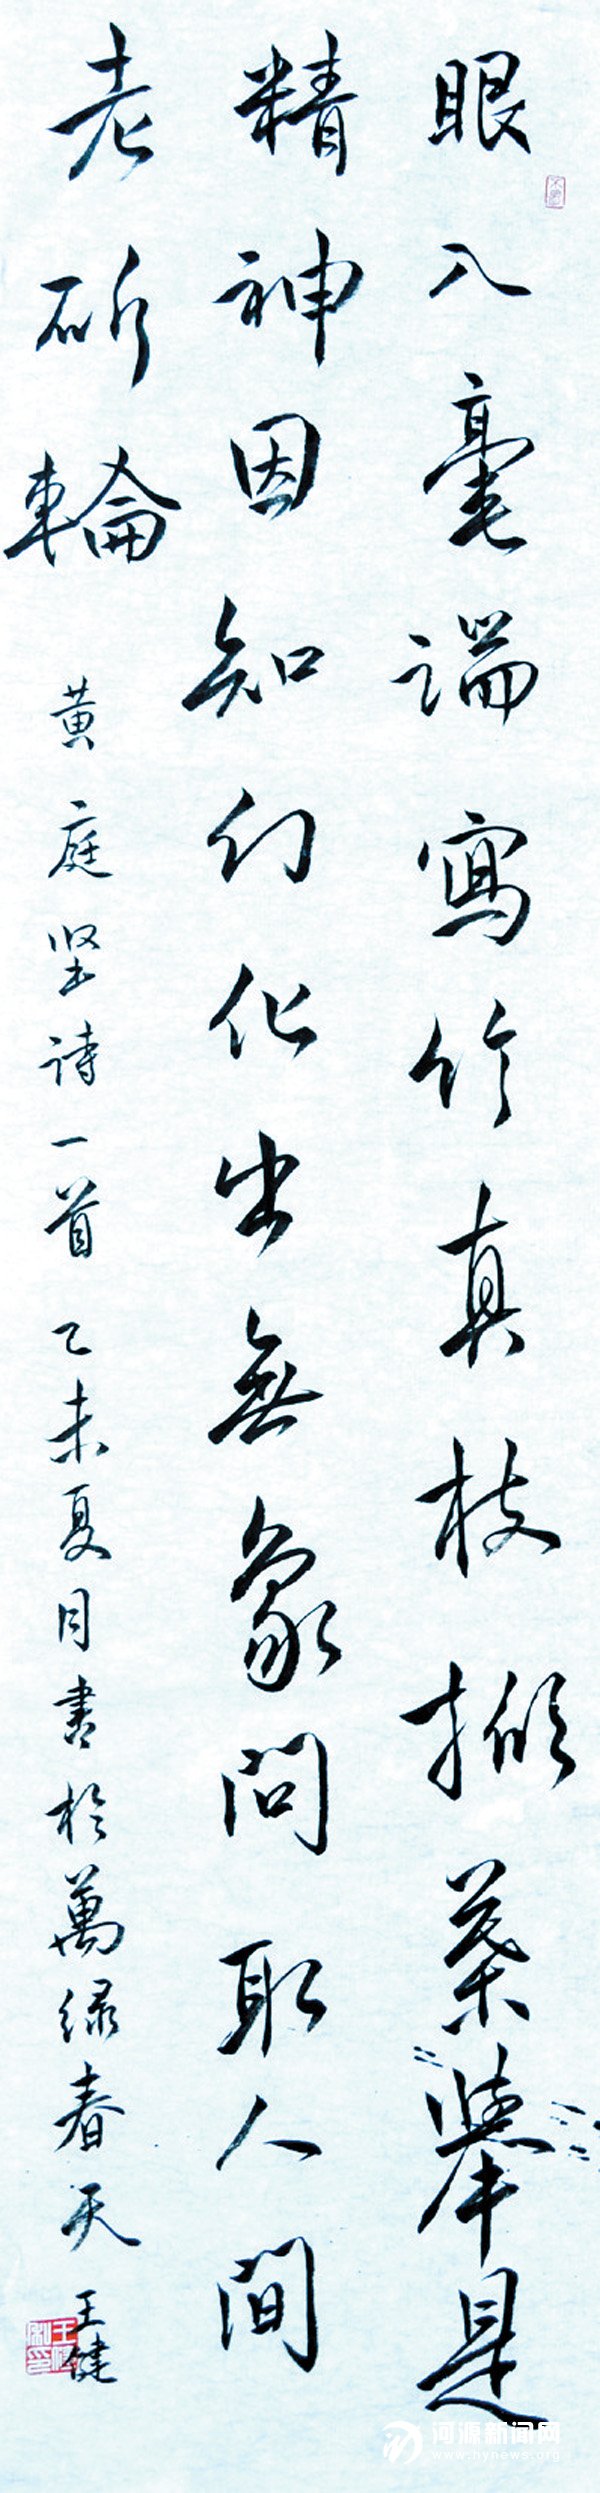 眼入毫端寫竹真枝掀葉舉是
精神因知幻化出無象問取人間
老斫輪
黄庭坚诗一首 乙未夏月書於萬绿春天 王健
河源新闻网
www.hynews.org